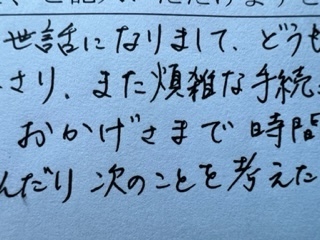 世話になりまして、どうも
さり、また煩雑な手続
おかげさまで時間
んだり次のことを考えた